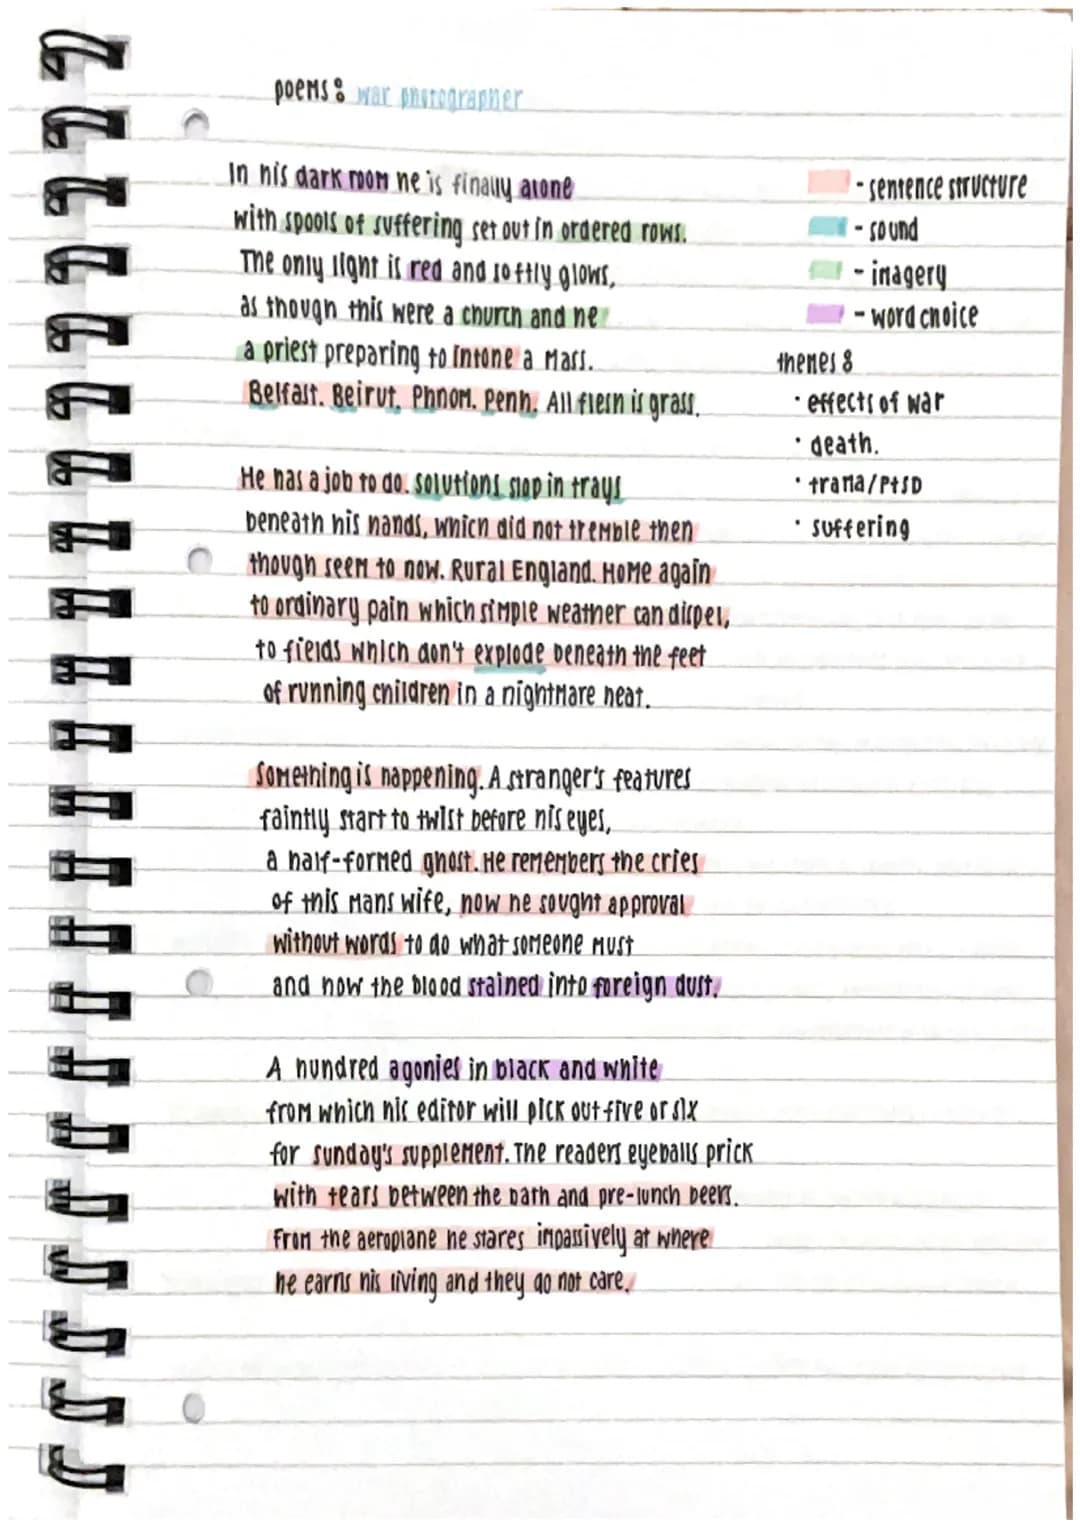 poems: war photographer
In his dark room he is finally alone
with spools of suffering set out in ordered rows.
The only light is red and softly glows,
as though this were a church and he
a priest preparing to intone a Mass.
Belfast. Beirut. Phnom. Penh. All flesh is grass.
He has a job to do. solutions slop in trays
beneath his hands, which did not tremble then
though seem to now. Rural England. Home again
to ordinary pain which simple weather can dispel,
to fields which don't explode beneath the feet
of running children in a nightmare heat.
Something is happening. A stranger's features
faintly start to twist before his eyes,
a half-formed ghost. He remembers the cries
of this mans wife, how he sought approval
without words to do what someone must
and how the blood stained into foreign dust.
A hundred agonies in black and white
from which his editor will pick out five or six
for sunday's supplement. The readers eyeballs prick
with tears between the bath and pre-lunch beers.
From the aeroplane he stares impassively at where
he earns his living and they do not care.
- sentence structure
- sound
- imagery
- word choice
themes:
· effects of war
· death.
· trama/PtSD
· suffering